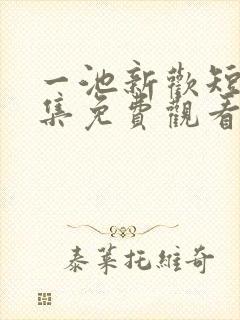 一池新歡短
集免費觀看
泰萊托維奇